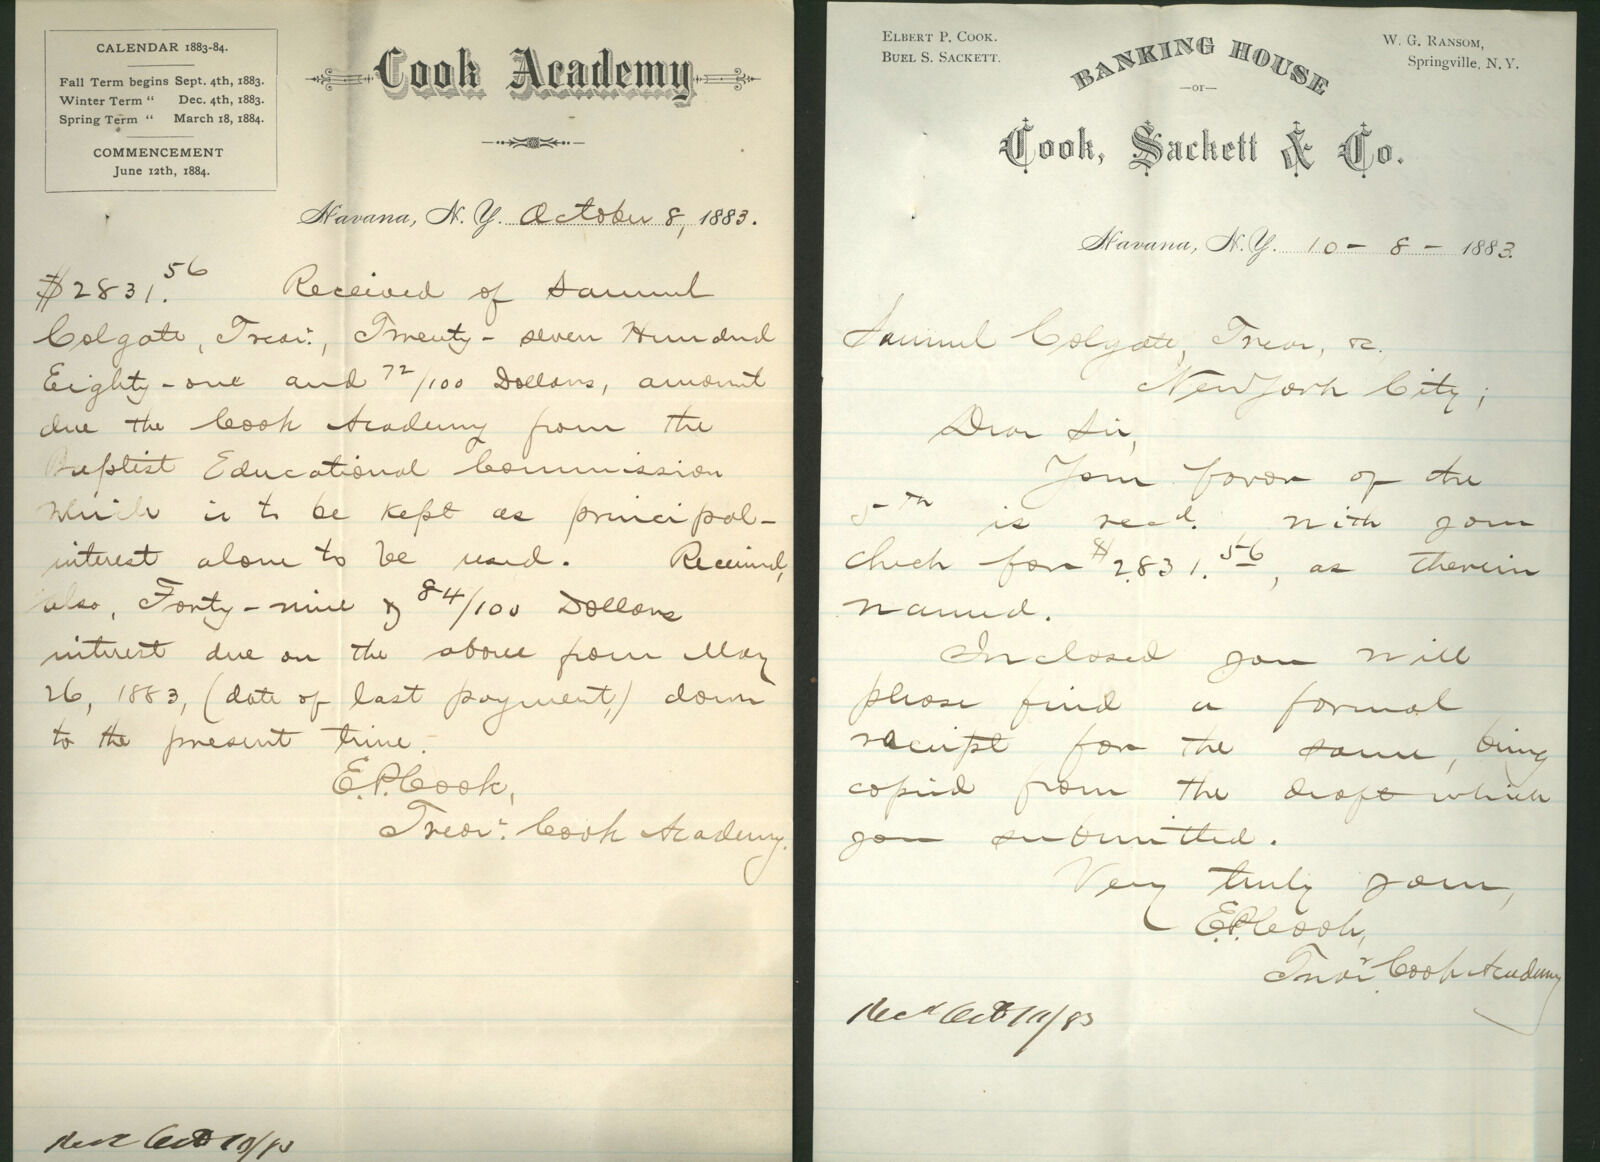 CALENDAR 1883-84.
Fall Term begins Sept. 4th, 1883.
Winter Term " Dec. 4th, 1883.
Spring Term " March 18, 1884.
COMMENCEMENT
June 12th, 1884.
Cook Academy
Havana, N. Y. October 8, 1883.
$2831.56 Received of Samuel
Colgate, Treasr., Twenty-seven Hundred
Eighty-one and 72/100 Dollars, amount
due the Cook Academy from the
Baptist Educational Commission
which is to be kept as principal-
interest alone to be used. Received,
also, Forty-nine & 84/100 Dollars
interest due on the above from May
26, 1883, (date of last payment,) down
to the present time.
E.P. Cook,
Treasr. Cook Academy.
Recd Oct 10/83
ELBERT P. COOK.
BUEL S. SACKETT.
BANKING HOUSE
—OF—
Cook, Sackett & Co.
W. G. RANSOM,
Springville, N. Y.
Havana, N. Y. 10 - 8 - 1883.
Samuel Colgate, Treas, &c.
New York City;
Dear Sir,
Your favor of the
5th is recd. with your
check for $2831.56, as therein
named.
Inclosed you will
please find a formal
receipt for the same, being
copied from the draft which
you submitted.
Very truly yours,
E.P. Cook,
Treasr. Cook Academy
Recd Oct 10/83